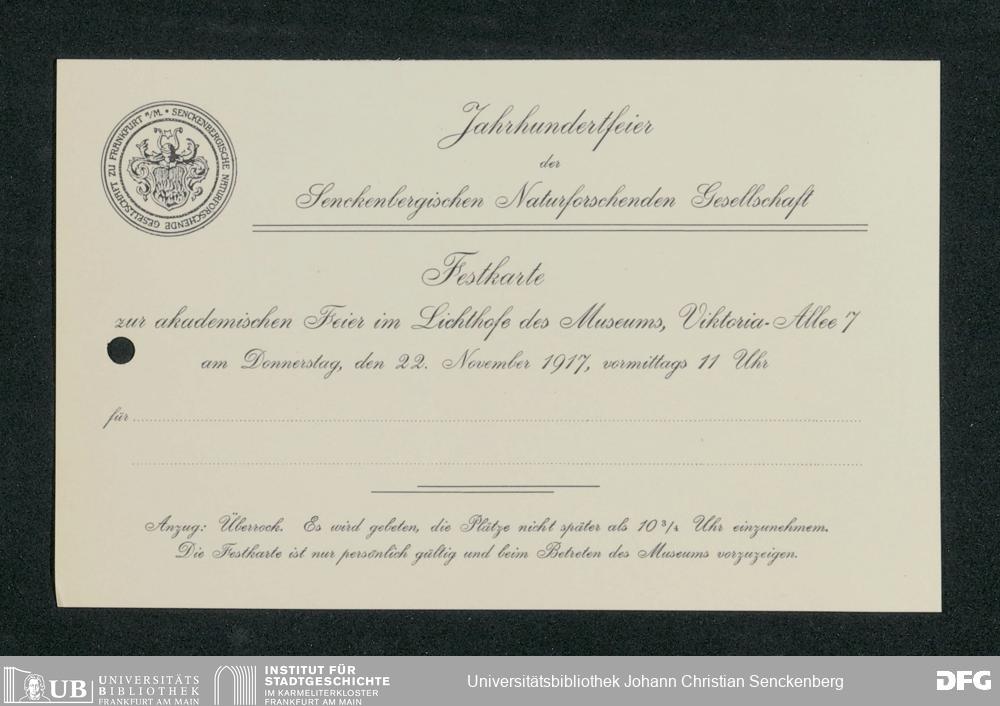 SENCKENBERGISCHE NATURFORSCHENDE GESELLSCHAFT ZU FRANKFURT a/M. *
Jahrhundertfeier
der
Senckenbergischen Naturforschenden Gesellschaft
Festkarte
zur akademischen Feier im Lichthofe des Museums, Viktoria-Allee 7
am Donnerstag, den 22. November 1917, vormittags 11 Uhr
für
Anzug: Überrock. Es wird gebeten, die Plätze nicht später als 10 3/4 Uhr einzunehmem.
Die Festkarte ist nur persönlich gültig und beim Betreten des Museums vorzuzeigen.
UB UNIVERSITÄTS
BIBLIOTHEK
FRANKFURT AM MAIN
INSTITUT FÜR
STADTGESCHICHTE
IM KARMELITERKLOSTER
FRANKFURT AM MAIN
Universitätsbibliothek Johann Christian Senckenberg
DFG